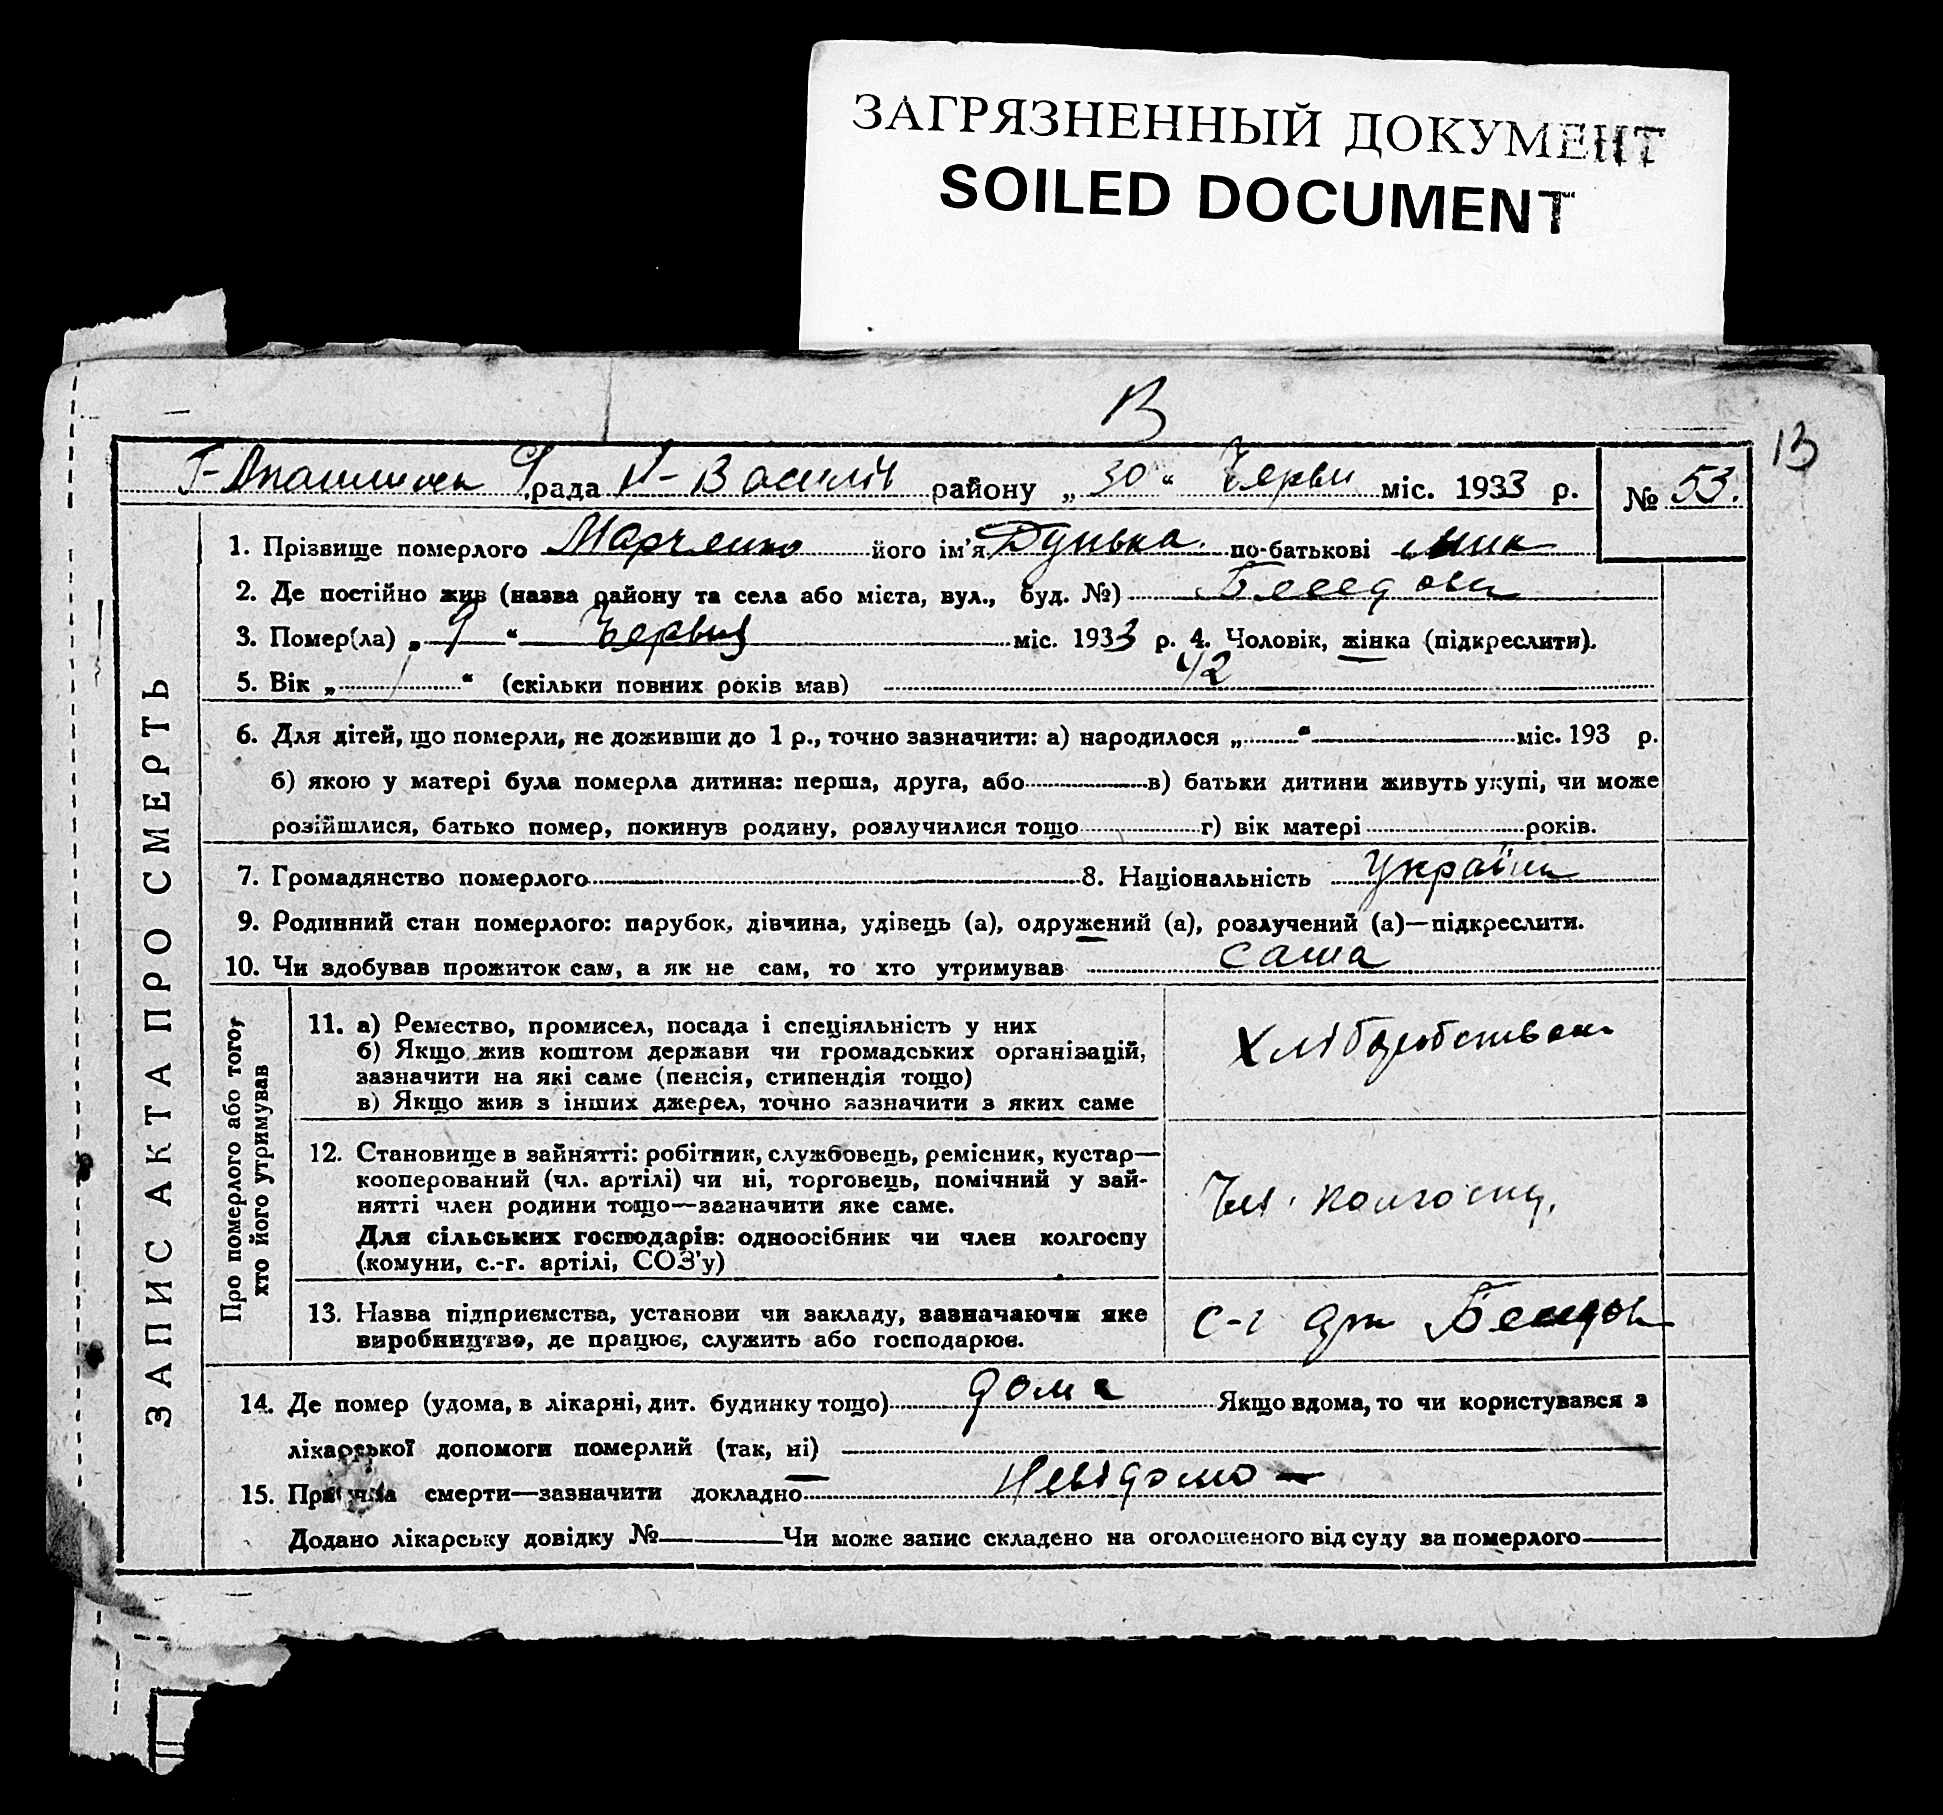 ЗАГРЯЗНЕННЫЙ ДОКУМЕНТ
SOILED DOCUMENT
13
рада районУ „ 30 “ Червн міс. 1933 р. № 53.
1. Прізвище померлого Марченко його ім'я Дунька по-батькові Мик
2. Де постійно жив (назва району та села або міста, вул., буд. №)
3. Помер(ла) „ 9 “ Червня міс. 1933 р. 4. Чоловік, жінка (підкреслити).
5. Вік „ “ (скільки повних років мав) 42
6. Для дітей, що померли, не доживши до 1 р., точно зазначити: а) народилося „ “ міс. 193 р.
б) якою у матері була померла дитина: перша, друга, або в) батьки дитини живуть укупі, чи може
розійшлися, батько помер, покинув родину, розлучилися тощо г) вік матері років.
7. Громадянство померлого 8. Національність Україн
9. Родинний стан померлого: парубок, дівчина, удівець (а), одружений (а), розлучений (а)—підкреслити.
10. Чи здобував прожиток сам, а як не сам, то хто утримував сама
ЗАПИС АКТА ПРО СМЕРТЬ
Про померлого або того, хто його утримував
11. а) Ремество, промисел, посада і спеціяльність у них
б) Якщо жив коштом держави чи громадських організацій,
зазначити на які саме (пенсія, стипендія тощо)
в) Якщо жив з інших джерел, точно зазначити з яких саме
12. Становище в зайнятті: робітник, службовець, ремісник, кустар—
кооперований (чл. артілі) чи ні, торговець, помічний у зай-
нятті член родини тощо—зазначити яке саме.
Для сільських господарів: одноосібник чи член колгоспу
(комуни, с.-г. артілі, СОЗ'у)
Чл. колгоспу.
13. Назва підприємства, установи чи закладу, зазначаючи яке
виробництво, де працює, служить або господарює.
с-г арт
14. Де помер (удома, в лікарні, дит. будинку тощо) дома Якщо вдома, то чи користувався з
лікарської допомоги померлий (так, ні)
15. Причина смерти—зазначити докладно Невідомо
Додано лікарську довідку № Чи може запис складено на оголошеного від суду за померлого